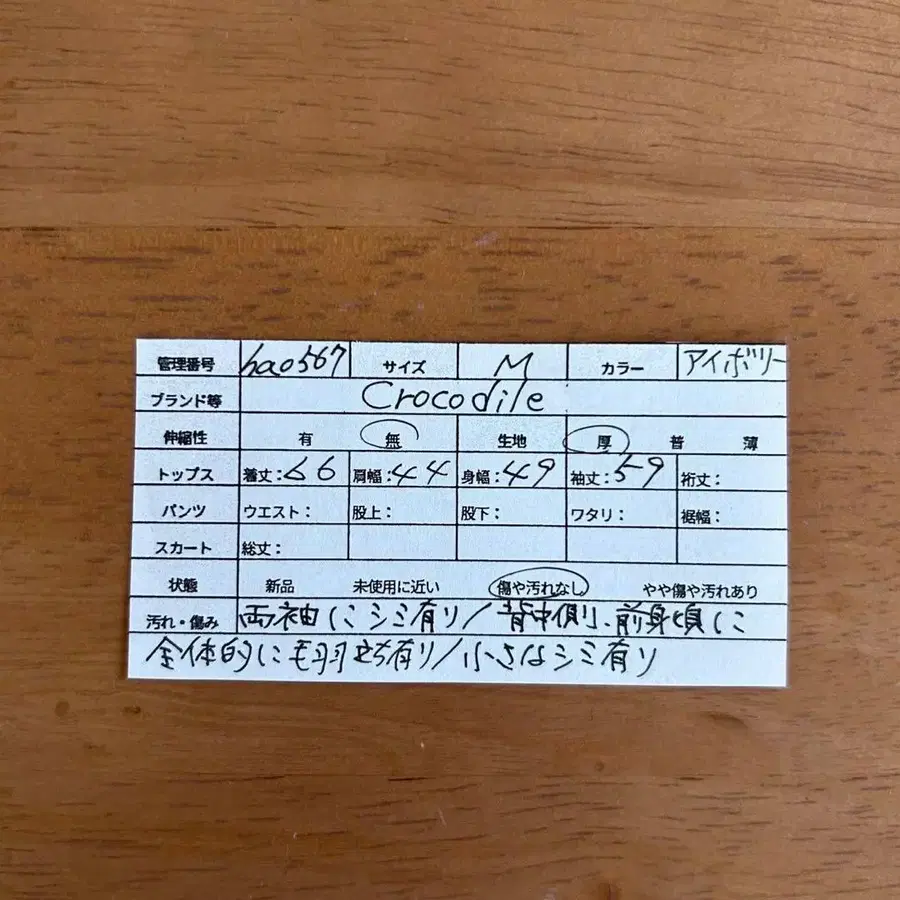 管理番号 hao567 サイズ M カラー アイボリー
ブランド等 Crocodile
伸縮性 有 無 生地 厚 普 薄
トップス 着丈:66 肩幅:44 身幅:49 袖丈:59 裄丈:
パンツ ウエスト: 股上: 股下: ワタリ: 裾幅:
スカート 総丈:
状態 新品 未使用に近い 傷や汚れなし やや傷や汚れあり
汚れ・傷み 両袖にシミ有り/背中側、前身頃に
全体的に毛羽立ち有り/小さなシミ有り